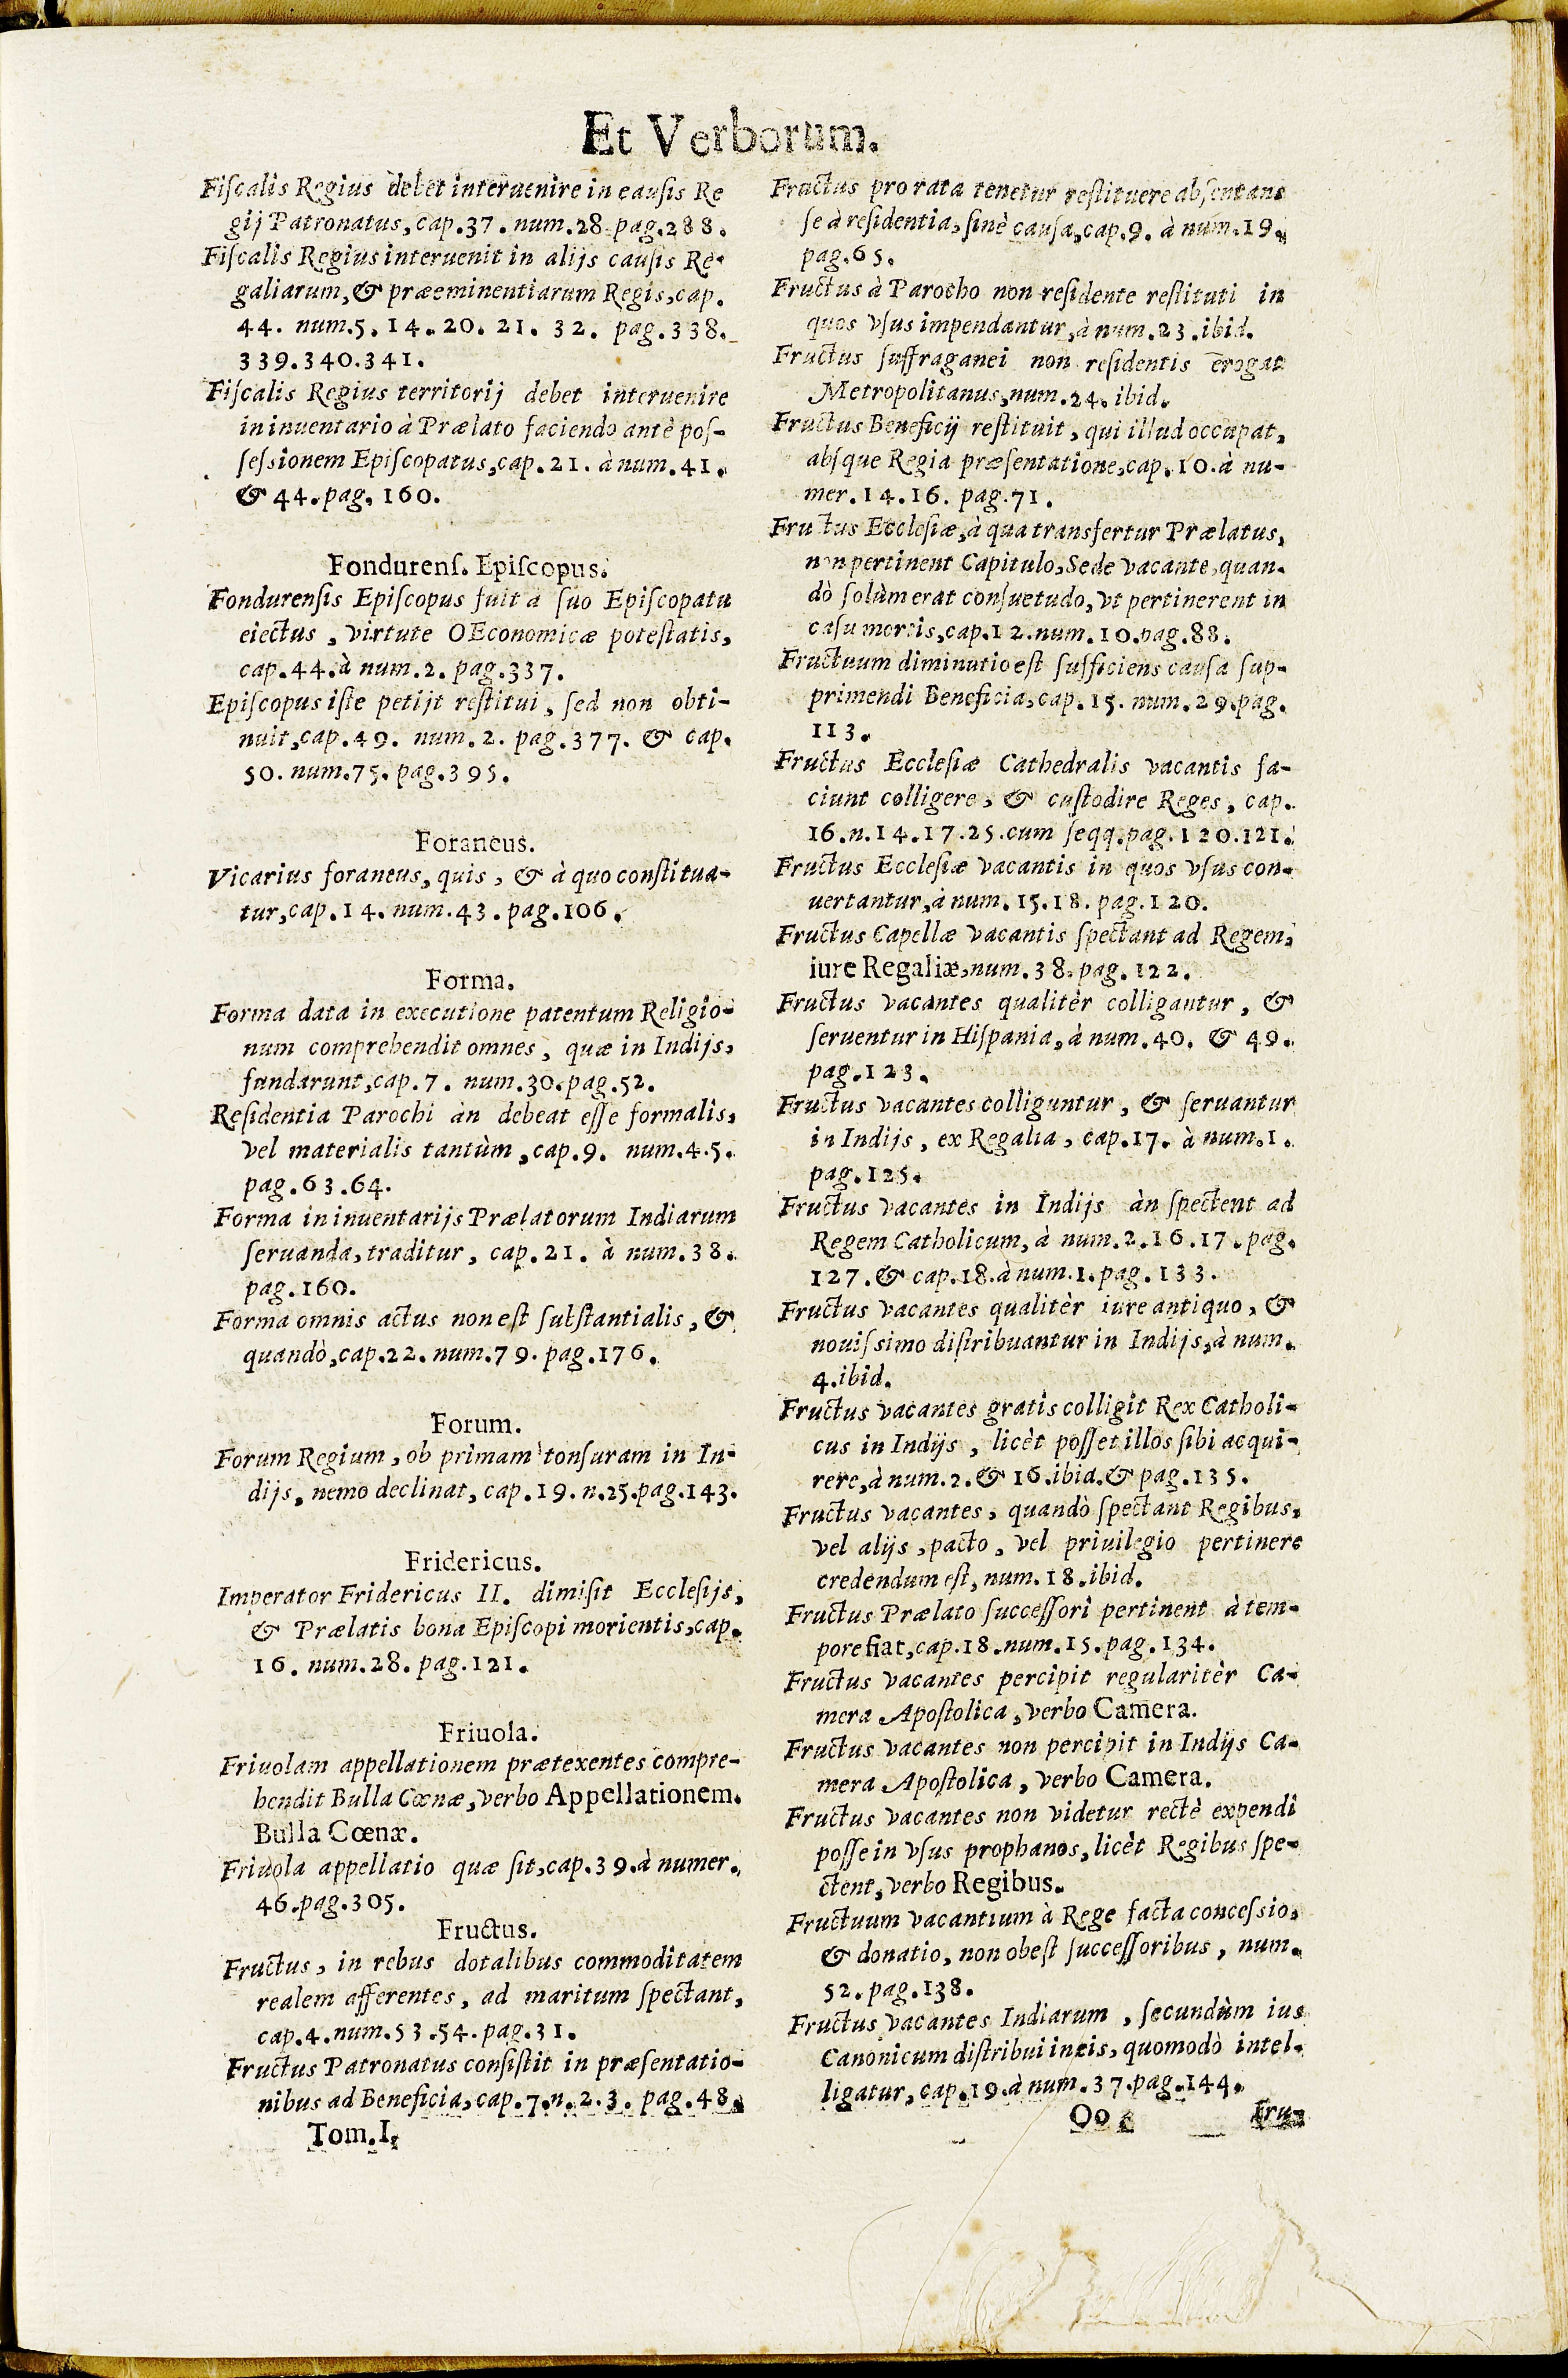 Et Verborum.
Fiſcalis Regius debet interuenire in cauſis Re
gij Patronatus, cap. 37. num. 28. pag. 288.
Fiſcalis Regius interuenit in alijs cauſis Re-
galiarum, & præeminentiarum Regis, cap.
44. num. 5. 14. 20. 21. 32. pag. 338.
339. 340. 341.
Fiſcalis Regius territorij debet interuenire
in inuentario à Prælato faciendo antè poſ-
ſeſsionem Epiſcopatus, cap. 21. à num. 41.
& 44. pag. 160.
Fondurenſ. Epiſcopus.
Fondurenſis Epiſcopus fuit à ſuo Epiſcopatu
eiectus, virtute OEconomicæ poteſtatis,
cap. 44. à num. 2. pag. 337.
Epiſcopus iſte petijt reſtitui, ſed non obti-
nuit, cap. 49. num. 2. pag. 377. & cap.
50. num. 75. pag. 395.
Foraneus.
Vicarius foraneus, quis, & à quo conſtitua-
tur, cap. 14. num. 43. pag. 106.
Forma.
Forma data in executione patentum Religio-
num comprehendit omnes, quæ in Indijs,
fundarunt, cap. 7. num. 30. pag. 52.
Reſidentia Parochi àn debeat eſſe formalis,
vel materialis tantùm, cap. 9. num. 4. 5.
pag. 63. 64.
Forma in inuentarijs Prælatorum Indiarum
ſeruanda, traditur, cap. 21. à num. 38.
pag. 160.
Forma omnis actus non eſt ſubſtantialis, &
quandò, cap. 22. num. 79. pag. 176.
Forum.
Forum Regium, ob primam tonſuram in In-
dijs, nemo declinat, cap. 19. n. 25. pag. 143.
Fridericus.
Imperator Fridericus II. dimiſit Eccleſijs,
& Prælatis bona Epiſcopi morientis, cap.
16. num. 28. pag. 121.
Friuola.
Friuolam appellationem prætexentes compre-
hendit Bulla Cœnæ, verbo Appellationem.
Bulla Cœnæ.
Friuola appellatio quæ ſit, cap. 39. à numer.
46. pag. 305.
Fructus.
Fructus, in rebus dotalibus commoditatem
realem afferentes, ad maritum ſpectant,
cap. 4. num. 53. 54. pag. 31.
Fructus Patronatus conſiſtit in præſentatio-
nibus ad Beneficia, cap. 7. n. 2. 3. pag. 48.
Tom. I.
Fructus pro rata tenetur reſtituere abſentans
ſe à reſidentia, ſinè cauſa, cap. 9. à num. 19.
pag. 65.
Fructus à Parocho non reſidente reſtituti in
quos vſus impendantur, à num. 23. ibid.
Fructus ſuffraganei non reſidentis erogat
Metropolitanus, num. 24. ibid.
Fructus Beneficij reſtituit, qui illud occupat,
abſque Regia præſentatione, cap. 10. à nu-
mer. 14. 16. pag. 71.
Fructus Eccleſiæ, à qua transfertur Prælatus,
non pertinent Capitulo, Sede vacante, quan-
dò ſolùm erat conſuetudo, vt pertinerent in
caſu mortis, cap. 12. num. 10. pag. 88.
Fructuum diminutio eſt ſufficiens cauſa ſup-
primendi Beneficia, cap. 15. num. 29. pag.
113.
Fructus Eccleſiæ Cathedralis vacantis fa-
ciunt colligere, & cuſtodire Reges, cap.
16. n. 14. 17. 25. cum ſeqq. pag. 120. 121.
Fructus Eccleſiæ vacantis in quos vſus con-
uertantur, à num. 15. 18. pag. 120.
Fructus Capellæ vacantis ſpectant ad Regem,
iure Regaliæ, num. 38. pag. 122.
Fructus vacantes qualitèr colligantur, &
ſeruentur in Hiſpania, à num. 40. & 49.
pag. 123.
Fructus vacantes colliguntur, & ſeruantur
in Indijs, ex Regalia, cap. 17. à num. 1.
pag. 125.
Fructus vacantes in Indijs àn ſpectent ad
Regem Catholicum, à num. 2. 16. 17. pag.
127. & cap. 18. à num. 1. pag. 133.
Fructus vacantes qualitèr iure antiquo, &
nouiſsimo diſtribuantur in Indijs, à num.
4. ibid.
Fructus vacantes gratis colligit Rex Catholi-
cus in Indijs, licèt poſſet illos ſibi acqui-
rere, à num. 2. & 16. ibid. & pag. 135.
Fructus vacantes, quandò ſpectant Regibus,
vel alijs, pacto, vel priuilegio pertinere
credendum eſt, num. 18. ibid.
Fructus Prælato ſucceſſori pertinent à tem-
pore fiat, cap. 18. num. 15. pag. 134.
Fructus vacantes percipit regularitèr Ca-
mera Apoſtolica, verbo Camera.
Fructus vacantes non percipit in Indijs Ca-
mera Apoſtolica, verbo Camera.
Fructus vacantes non videtur rectè expendi
poſſe in vſus prophanos, licèt Regibus ſpe-
ctent, verbo Regibus.
Fructuum vacantium à Rege facta conceſsio,
& donatio, non obeſt ſucceſſoribus, num.
52. pag. 138.
Fructus vacantes Indiarum, ſecundùm ius
Canonicum diſtribui in eis, quomodò intel-
ligatur, cap. 19. à num. 37. pag. 144.
Oo
Fru-